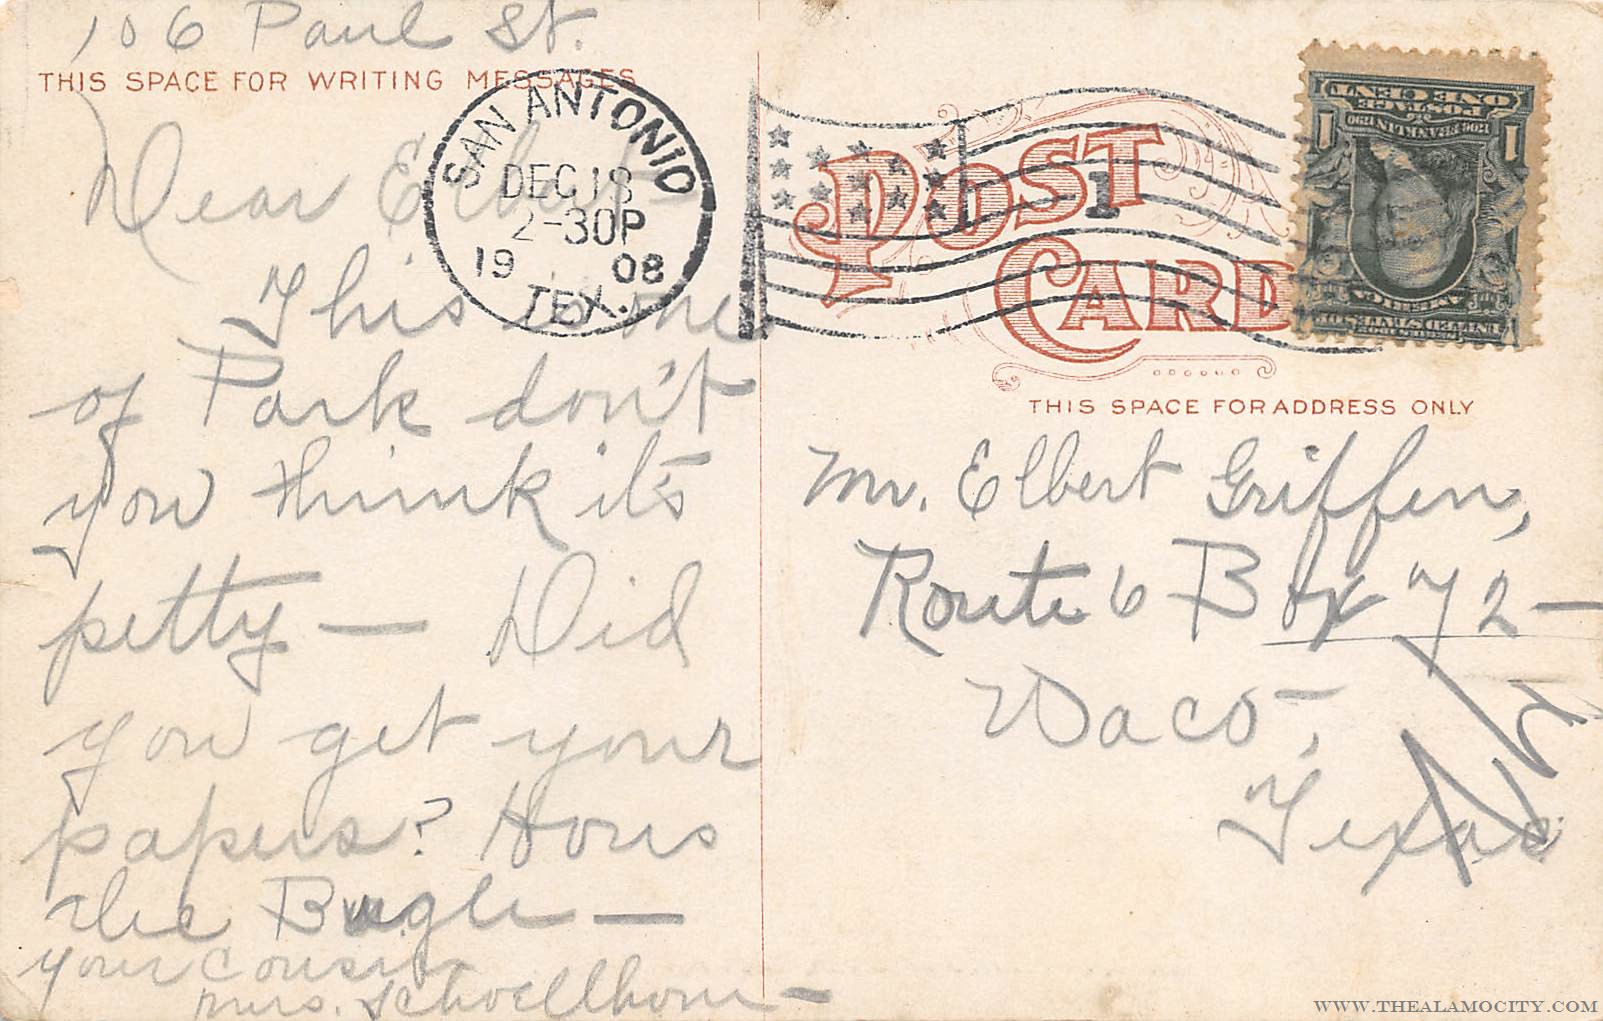 106 Paul St.
THIS SPACE FOR WRITING MESSAGES
Dear Elbert
This is one
of Park don't
you think it's
petty — Did
you get your
papers? Hows
the Bugle —
your cousin
Mrs. Schoellhorn —
SAN ANTONIO
DEC 18
2-30P
19 08
TEX.
1
POST
CARD
THIS SPACE FOR ADDRESS ONLY
Mr. Elbert Griffin,
Route 6 Box 72 —
Waco,
Texas
ONE CENT
POSTAGE
1706 FRANKLIN 1790
1 1
UNITED STATES OF
AMERICA
WWW.THEALAMOCITY.COM